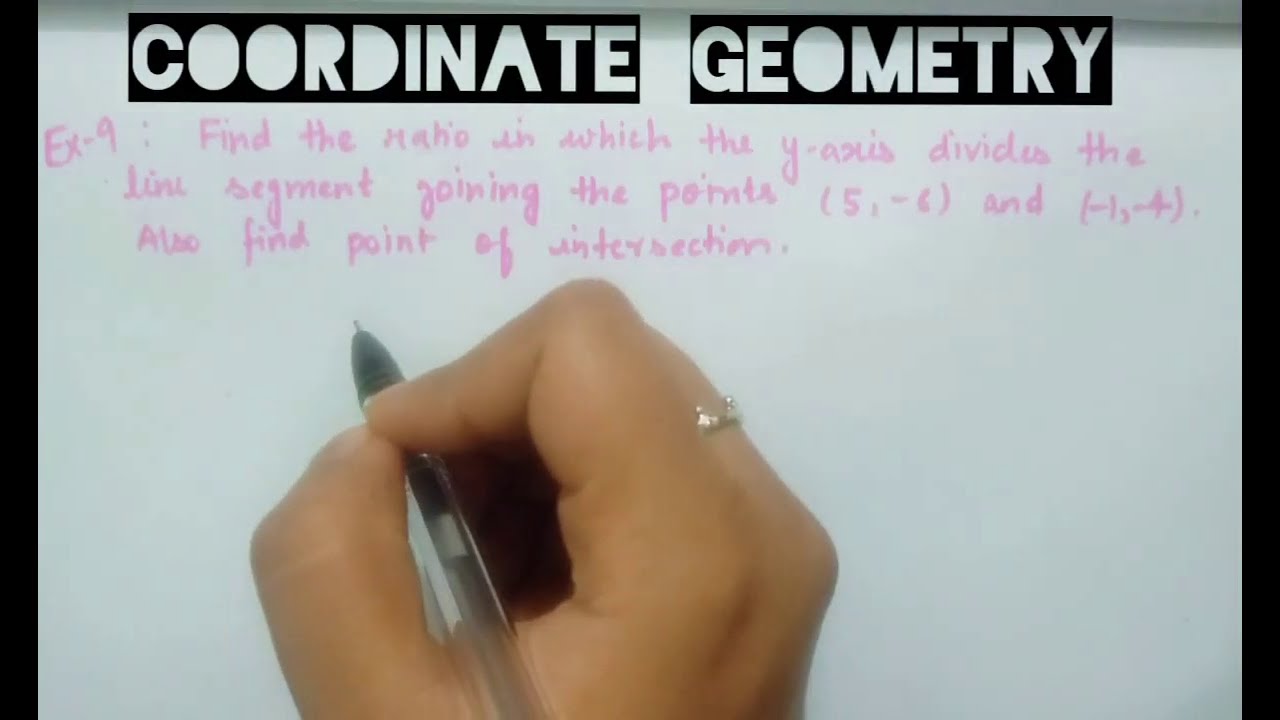 COORDINATE GEOMETRY
Ex-9 : Find the ratio in which the y-axis divides the
line segment joining the points (5,-6) and (-1,-4).
Also find point of intersection.